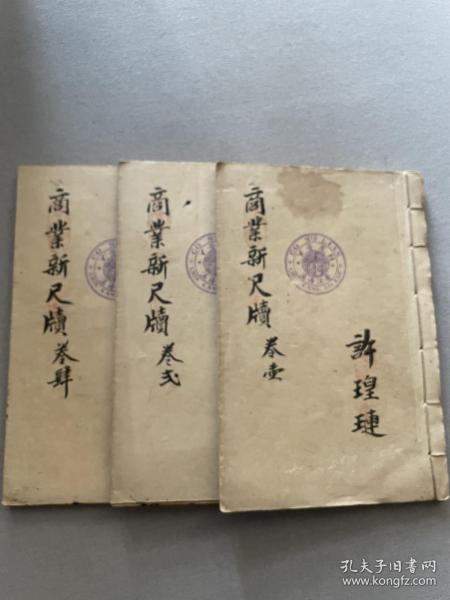 商業新尺牘 卷肆
商業新尺牘 卷弍
商業新尺牘 卷壹
許瑝璉
孔夫子旧书网
www.kongfz.com